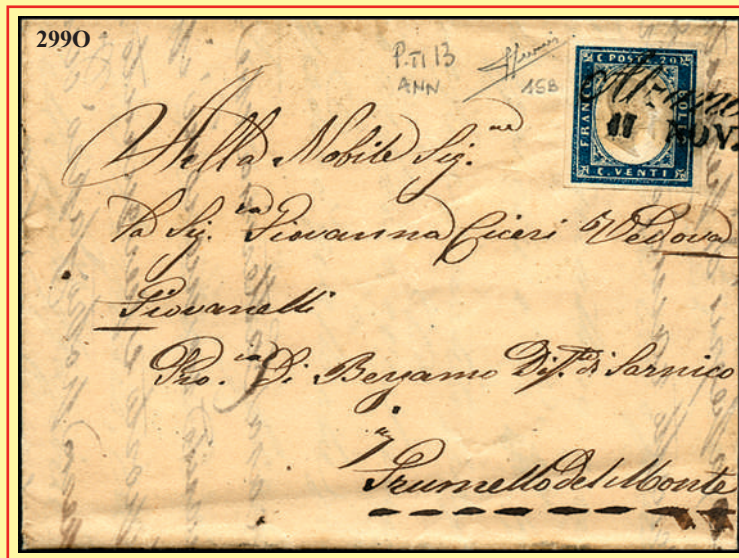 299O
P.ti 13
ANN
15B
C POSTE 20
FRANCO
BOLLO
C. VENTI
11 NOV.
Alla Nobile Sig.ra
la Sig.ra Giovanna Ciceri Vedova
Giovanelli
Pro.cia Di Bergamo Dis.to di Sarnico
Grumello Del Monte